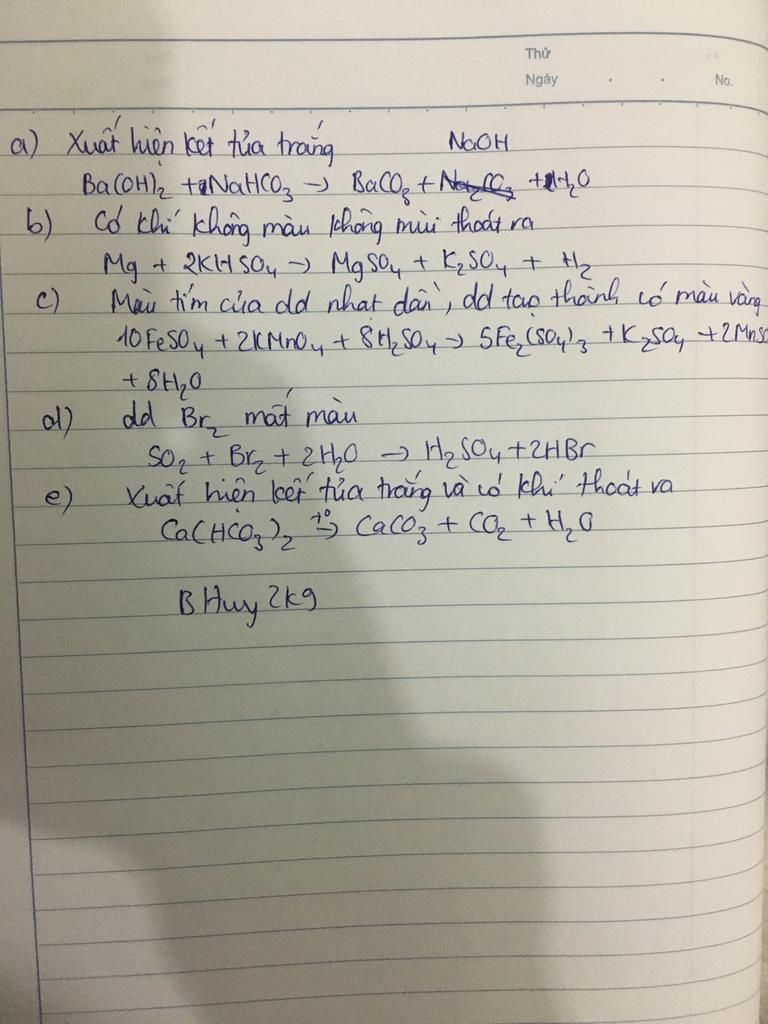 Thứ
Ngày . . No.
a) Xuất hiện kết tủa trắng NaOH
Ba(OH)₂ + NaHCO₃ → BaCO₃ + Na₂CO₃ + H₂O
b) Có khí không màu không mùi thoát ra
Mg + 2KHSO₄ → MgSO₄ + K₂SO₄ + H₂
c) Màu tím của dd nhạt dần, dd tạo thành có màu vàng
10FeSO₄ + 2KMnO₄ + 8H₂SO₄ → 5Fe₂(SO₄)₃ + K₂SO₄ + 2MnSO
+ 8H₂O
d) dd Br₂ mất màu
SO₂ + Br₂ + 2H₂O → H₂SO₄ + 2HBr
e) Xuất hiện kết tủa trắng và có khí thoát ra
Ca(HCO₃)₂ t° → CaCO₃ + CO₂ + H₂O
B Huy 2k9